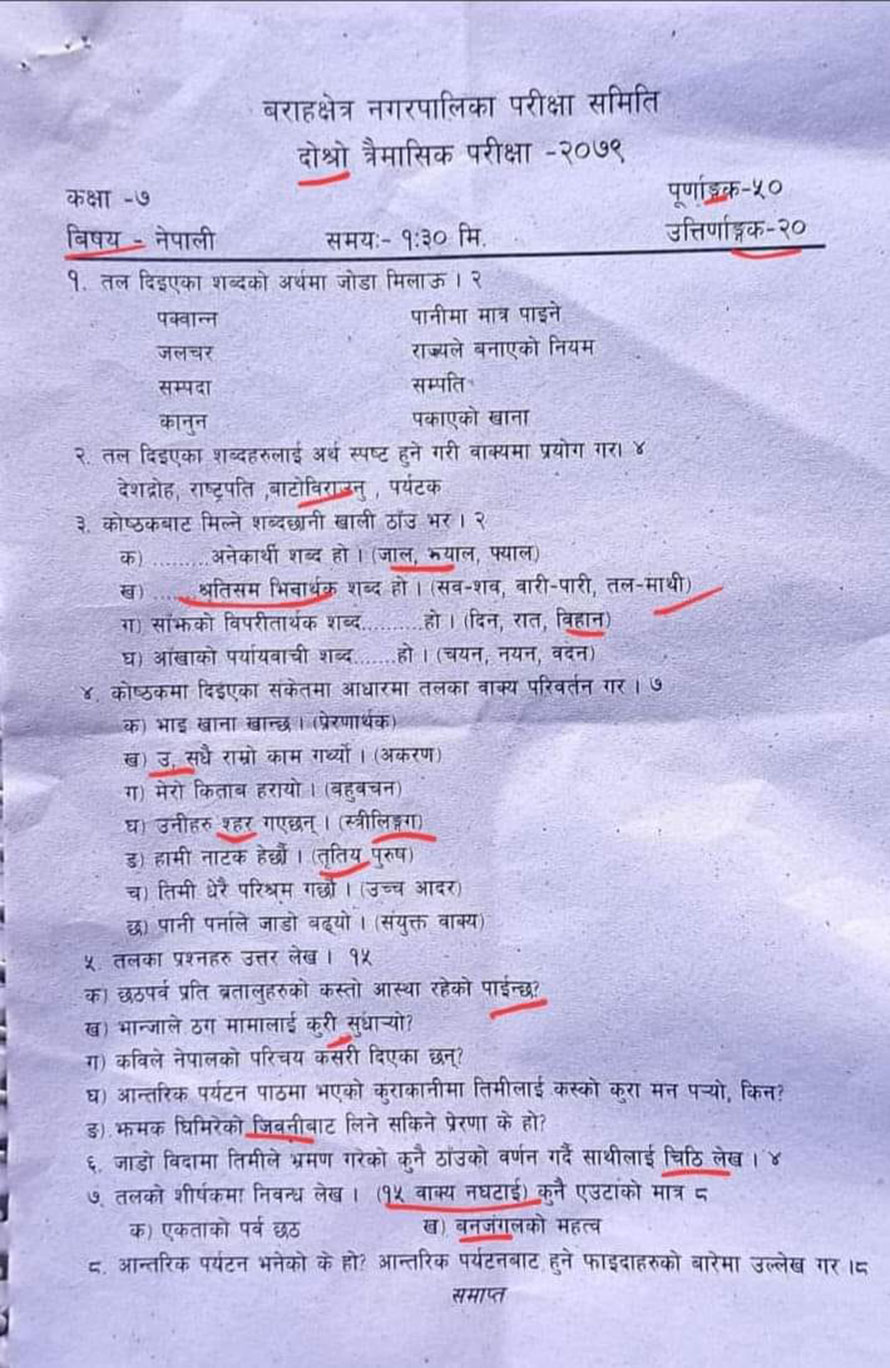 बराहक्षेत्र नगरपालिका परीक्षा समिति
दोश्रो त्रैमासिक परीक्षा -२०७९
कक्षा -७ पूर्णाङ्गक-५०
बिषय - नेपाली समयः- १:३० मि. उत्तिर्णाङ्गक-२०
१. तल दिइएका शब्दको अर्थमा जोडा मिलाऊ । २
पक्वान्न पानीमा मात्र पाइने
जलचर राज्यले बनाएको नियम
सम्पदा सम्पति
कानुन पकाएको खाना
२. तल दिइएका शब्दहरुलाई अर्थ स्पष्ट हुने गरी वाक्यमा प्रयोग गर। ४
देशद्रोह, राष्ट्रपति ,बाटोविराउनु , पर्यटक
३. कोष्ठकबाट मिल्ने शब्दछानी खाली ठाँउ भर । २
क) .........अनेकार्थी शब्द हो । (जाल, झ्याल, फ्याल)
ख) .......श्रतिसम भिन्नार्थक शब्द हो । (सव-शव, वारी-पारी, तल-माथी)
ग) साँझको विपरीतार्थक शब्द..........हो । (दिन, रात, विहान)
घ) आँखाको पर्यायवाची शब्द.......हो । (चयन, नयन, वदन)
४. कोष्ठकमा दिइएका संकेतमा आधारमा तलका वाक्य परिवर्तन गर । ७
क) भाइ खाना खान्छ । (प्रेरणार्थक)
ख) उ, सधै राम्रो काम गर्थ्यो । (अकरण)
ग) मेरो किताब हरायो । (बहुबचन)
घ) उनीहरु श्हर गएछन् । (स्त्रीलिङ्गग)
ङ) हामी नाटक हेर्छौ । (तृतिय पुरुष)
च) तिमी धेरै परिश्रम गर्छौ । (उच्च आदर)
छ) पानी पर्नाले जाडो बढ्यो । (संयुक्त वाक्य)
५. तलका प्रश्नहरु उत्तर लेख । १५
क) छठपर्व प्रति ब्रतालुहरुको कस्तो आस्था रहेको पाईन्छ?
ख) भान्जाले ठग मामालाई कुरी सुधाऱ्यो?
ग) कविले नेपालको परिचय कसरी दिएका छन्?
घ) आन्तरिक पर्यटन पाठमा भएको कुराकानीमा तिमीलाई कस्को कुरा मन पऱ्यो, किन?
ङ) झमक घिमिरेको जिवनीबाट लिने सकिने प्रेरणा के हो?
६. जाडो विदामा तिमीले भ्रमण गरेको कुनै ठाँउको वर्णन गर्दै साथीलाई चिठि लेख । ४
७. तलको शीर्षकमा निवन्ध लेख । (१५ वाक्य नघटाई) कुनै एउटाको मात्र ८
क) एकताको पर्व छठ ख) बनजंगलको महत्व
८. आन्तरिक पर्यटन भनेको के हो? आन्तरिक पर्यटनबाट हुने फाइदाहरुको बारेमा उल्लेख गर ।८
समाप्त